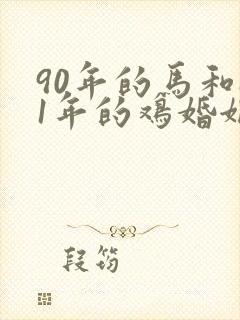 90年的馬和
1年的鷄婚
段筠